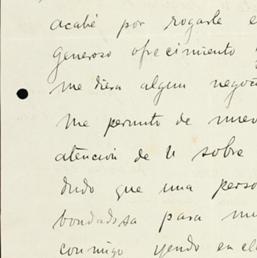 acabé por rogarle e
generoso ofrecimiento
me diera algun negoc
Me permito de nuev
atención de U sobre
dudo que una perso
bondadosa para mi
conmigo yendo en el